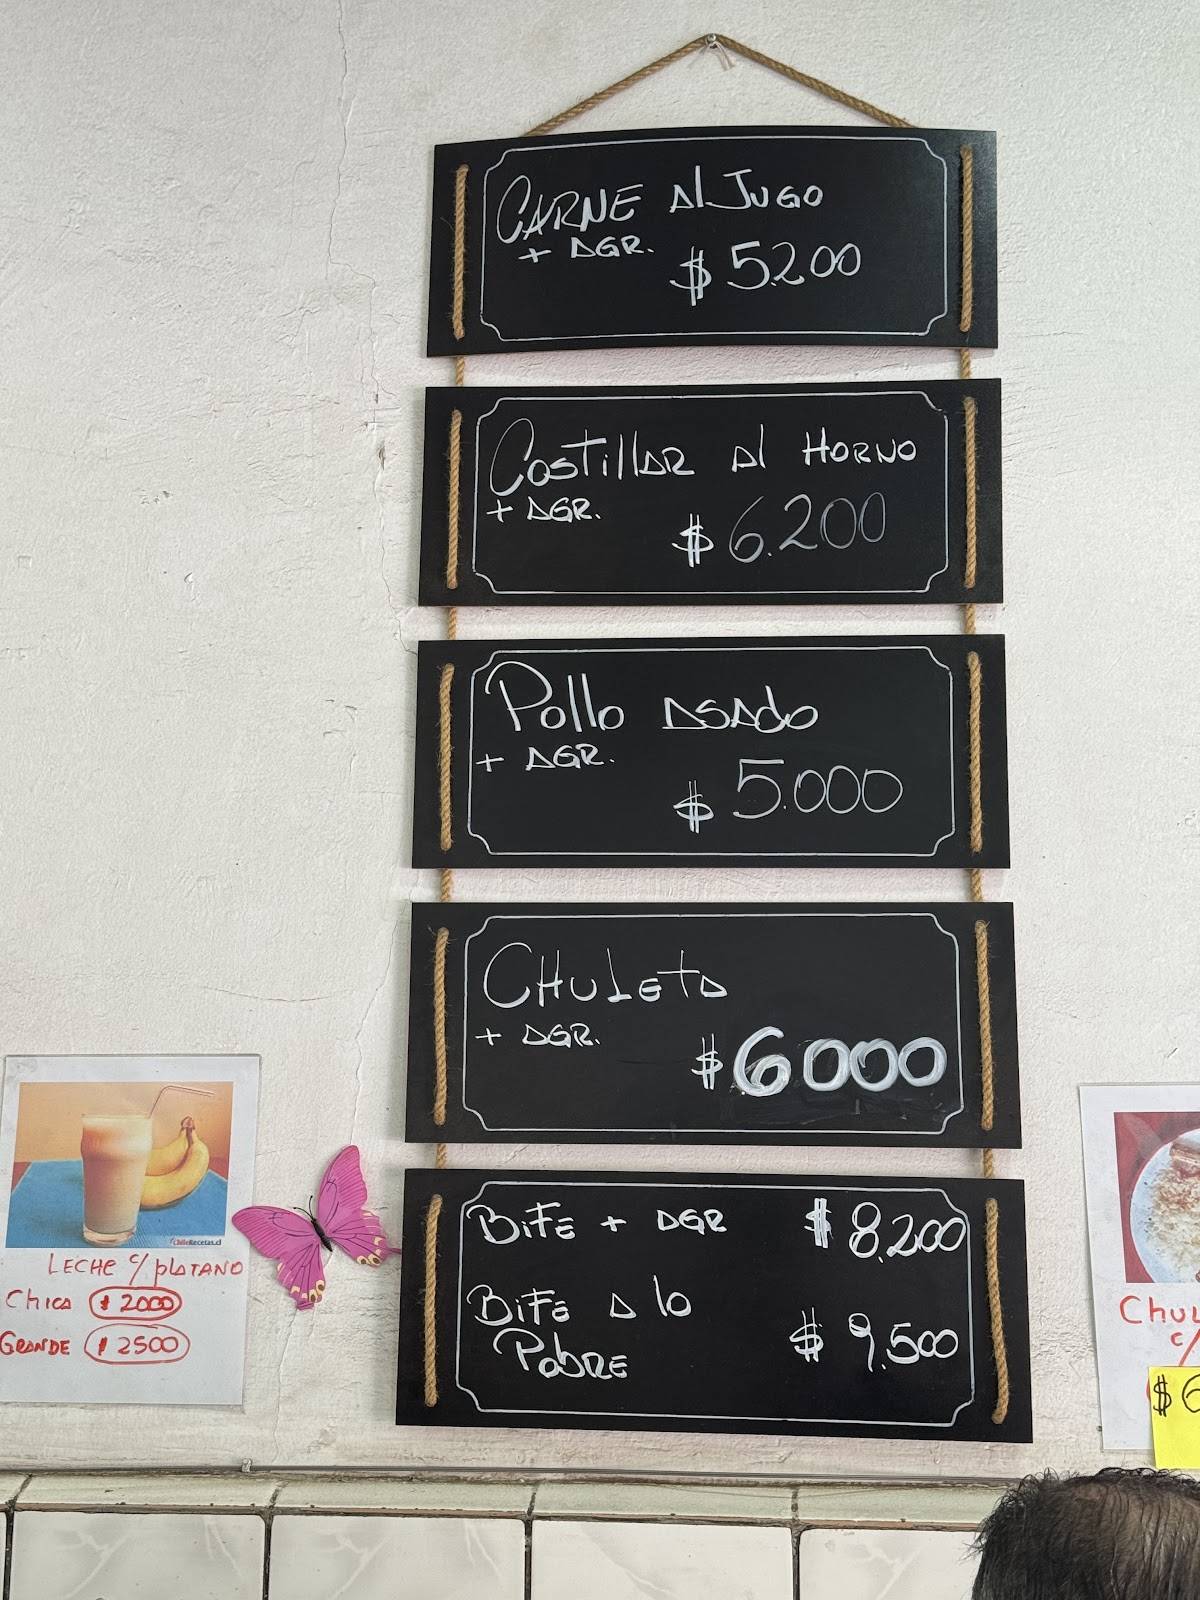 CARNE Al JUGO
+ AGR.
$ 5.200
Costillar al HORNO
+ AGR.
$ 6.200
Pollo asado
+ AGR.
$ 5.000
CHULETA
+ AGR.
$ 6000
BIFE + AGR $ 8.200
BIFE a lo
PobRE $ 9.500
ChileRecetas.cl
LECHE c/ plATANO
Chica $ 2000
GRANDE $ 2500
Chul
c/
$6